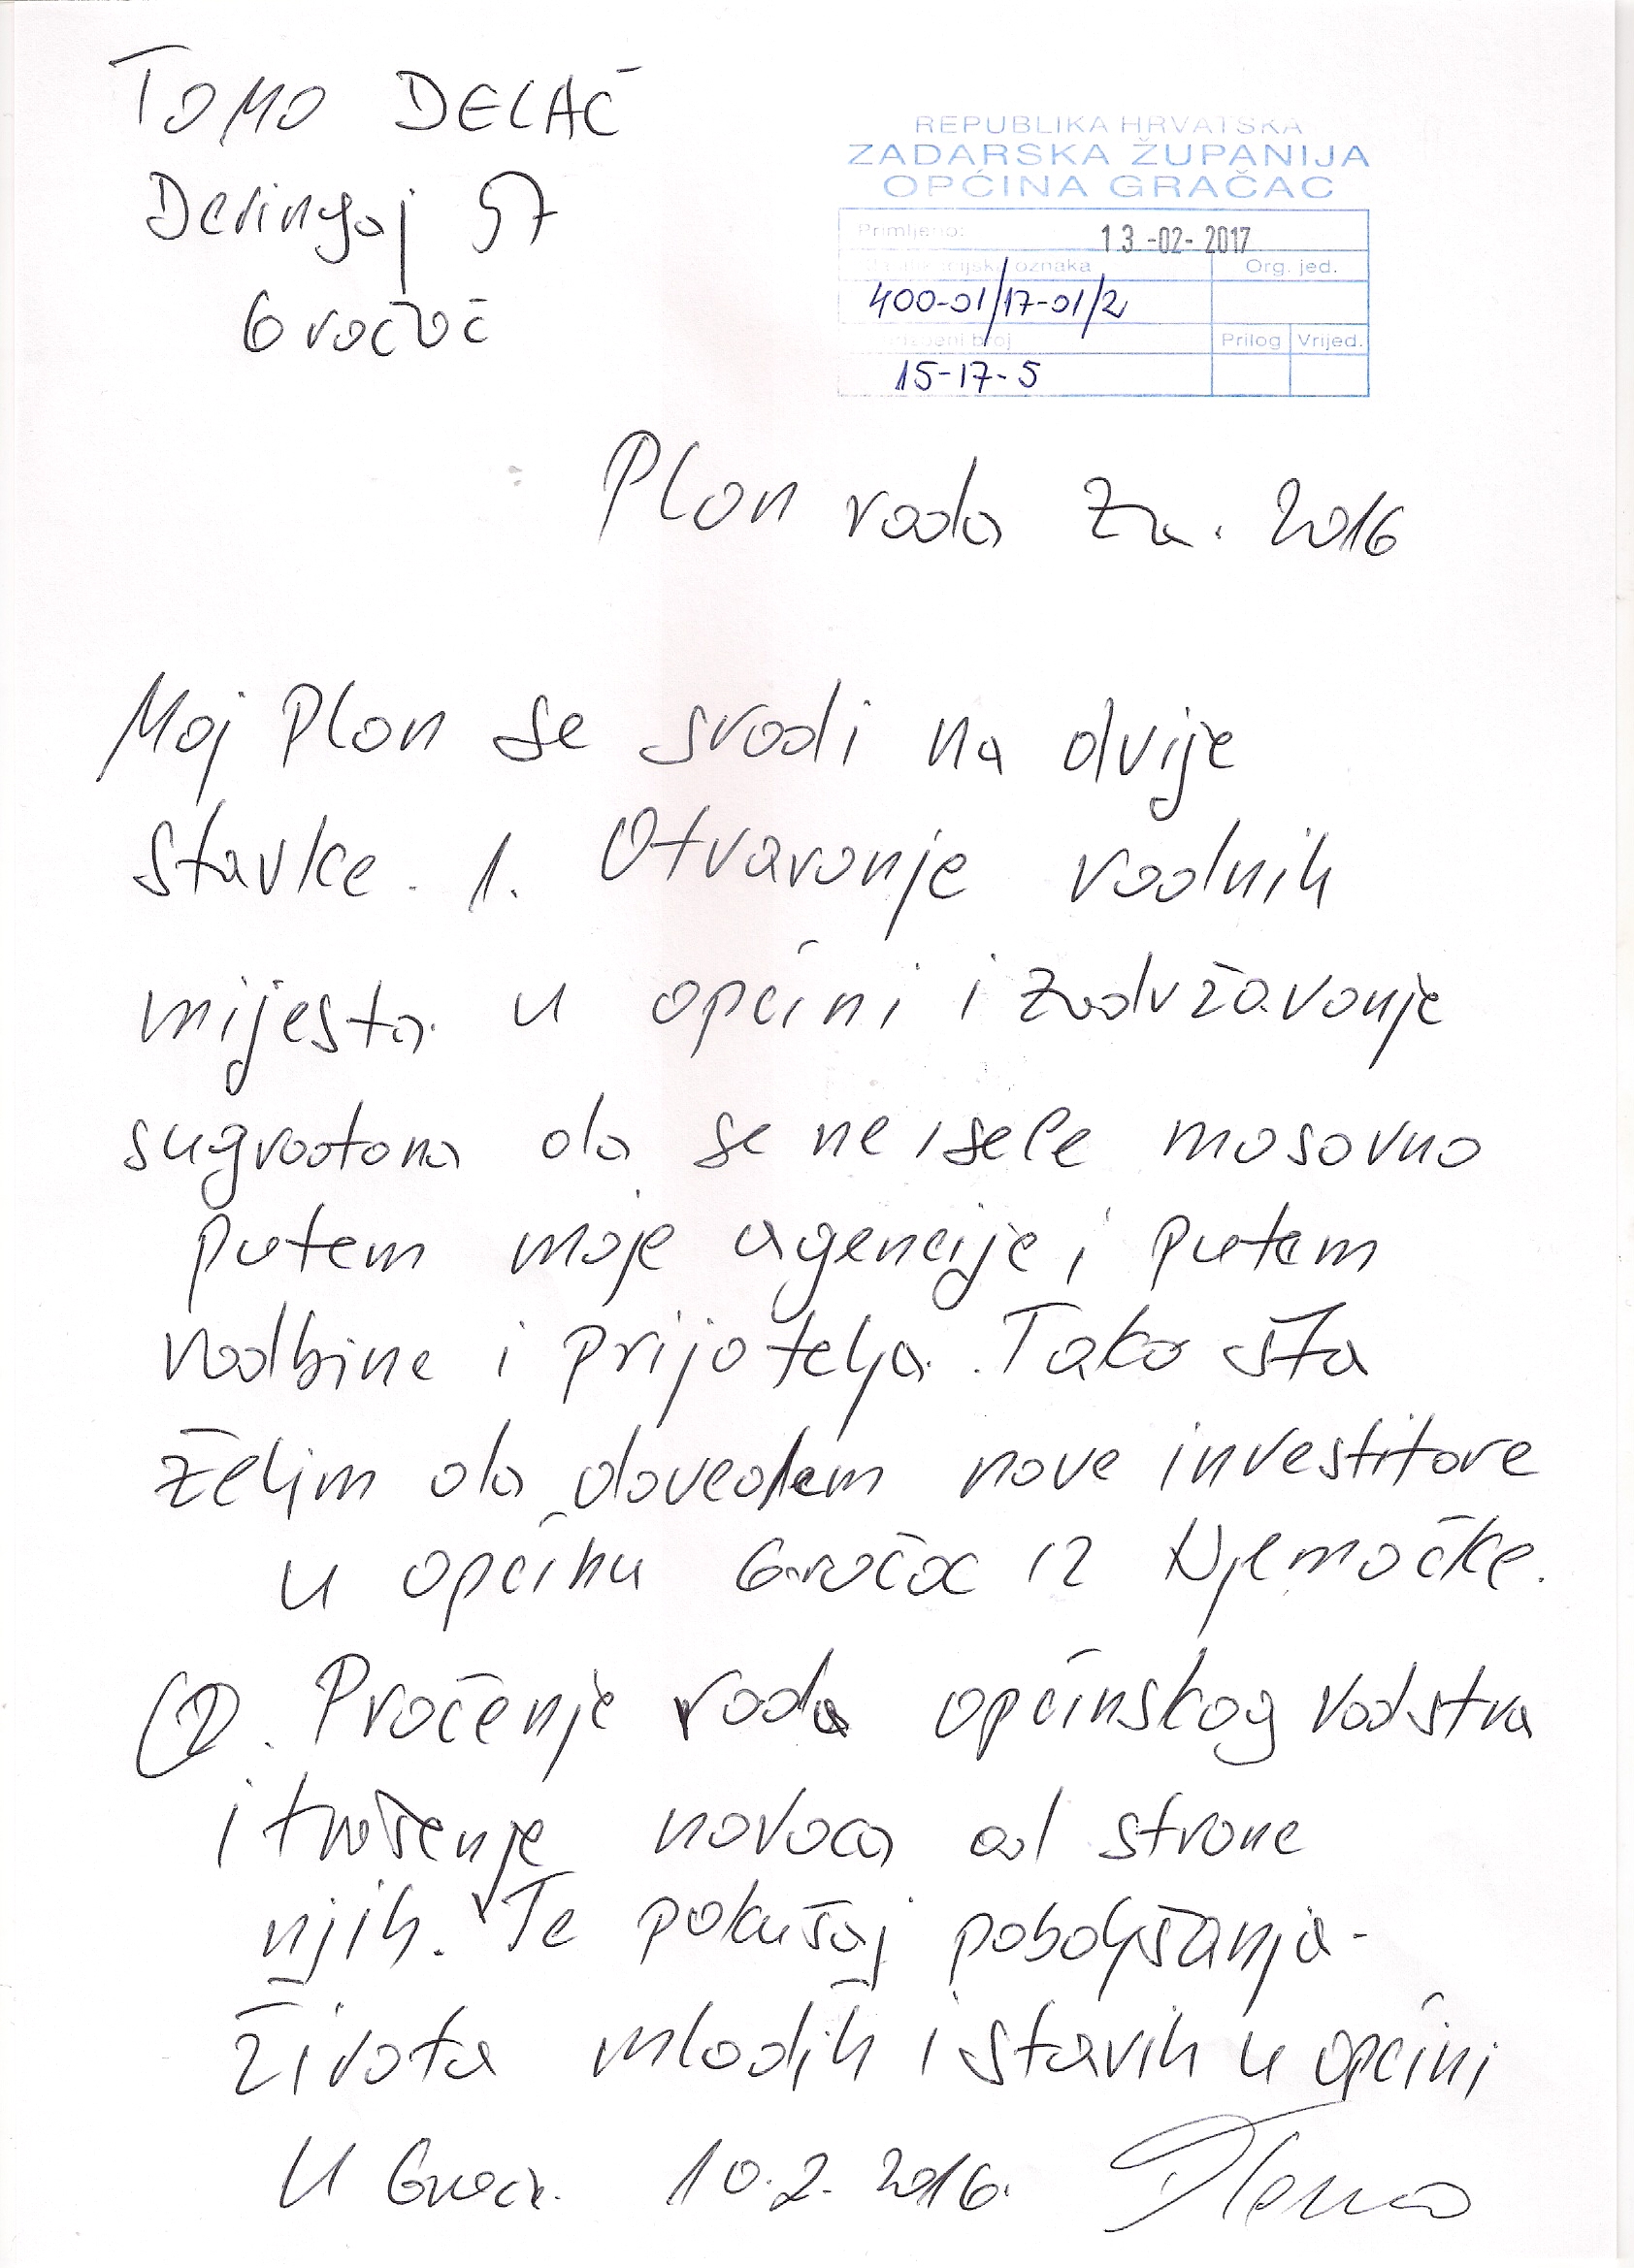 TOMO DELAČ
Deringaj 57
Gračac
REPUBLIKA HRVATSKA
ZADARSKA ŽUPANIJA
OPĆINA GRAČAC
Primljeno: 13 -02- 2017
oznaka Org. jed.
400-01/17-01/2
broj Prilog Vrijed.
15-17-5
Plan rada za. 2016
Moj Plan se svodi na dvije
stavke. 1. Otvaranje radnih
mijesta u općini i zadržavanje
sugrađana da se ne isele masovno
putem moje agencije i putem
rodbine i prijatelja. Tako šta
želim da dovedem nove investitore
u općinu Gračac iz Njemačke.
2. Praćenje rada općinskog vodstva
i trošenje novaca od strane
njih. Te pokušaj poboljšanja
života mladih i starih u općini
U 10.2.2016.